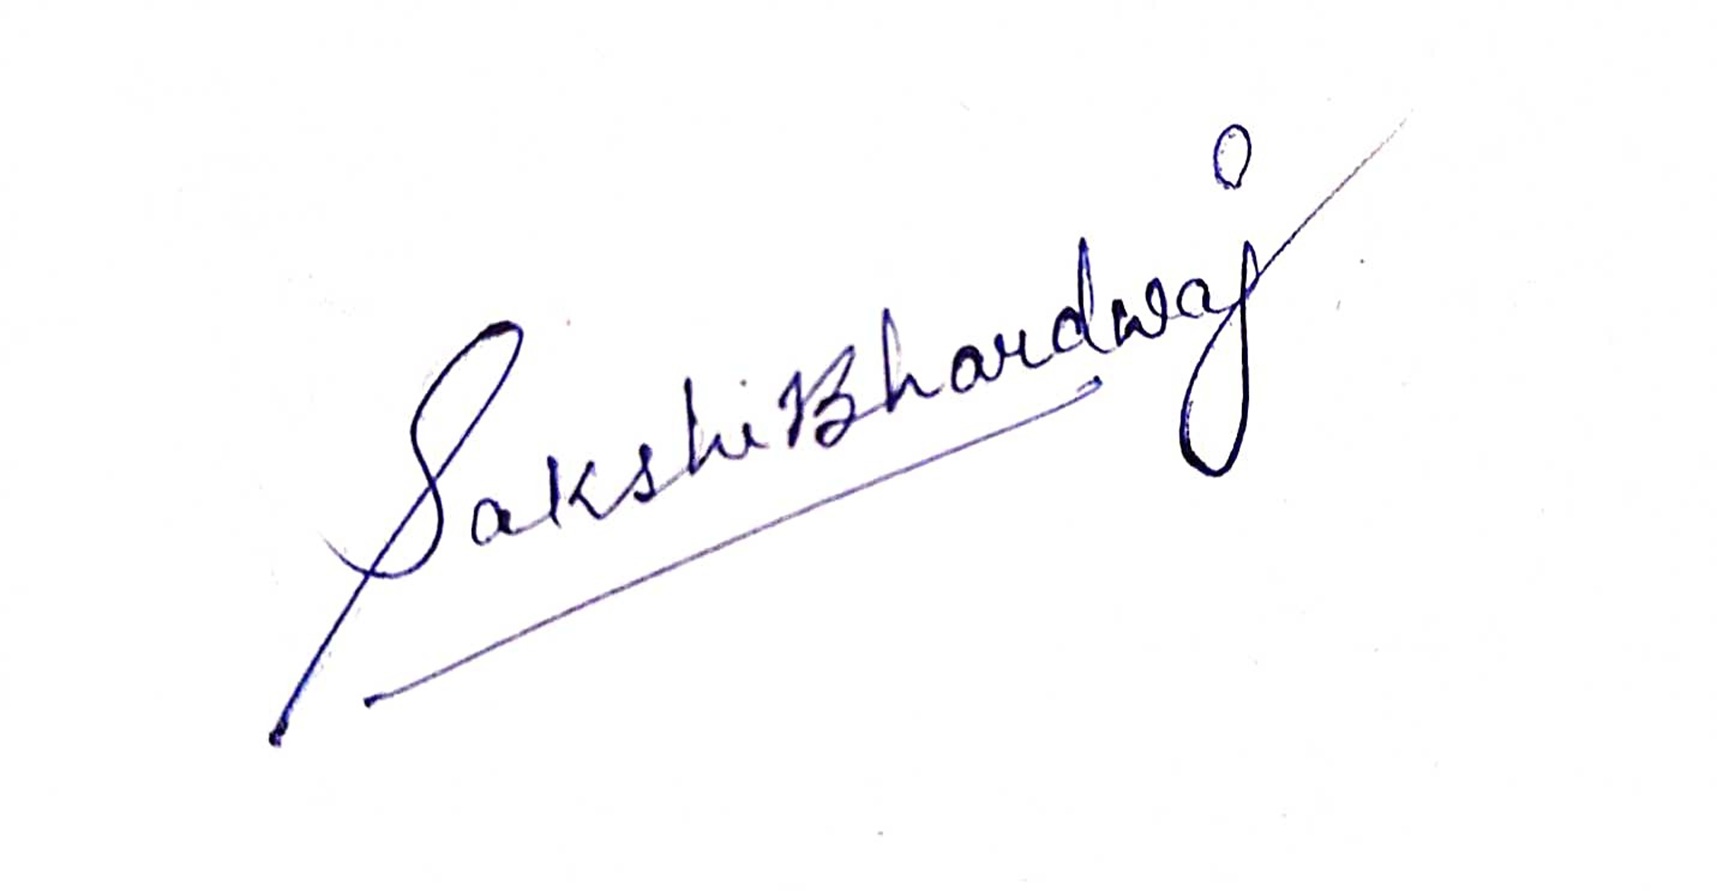 Sakshi Bhardwaj